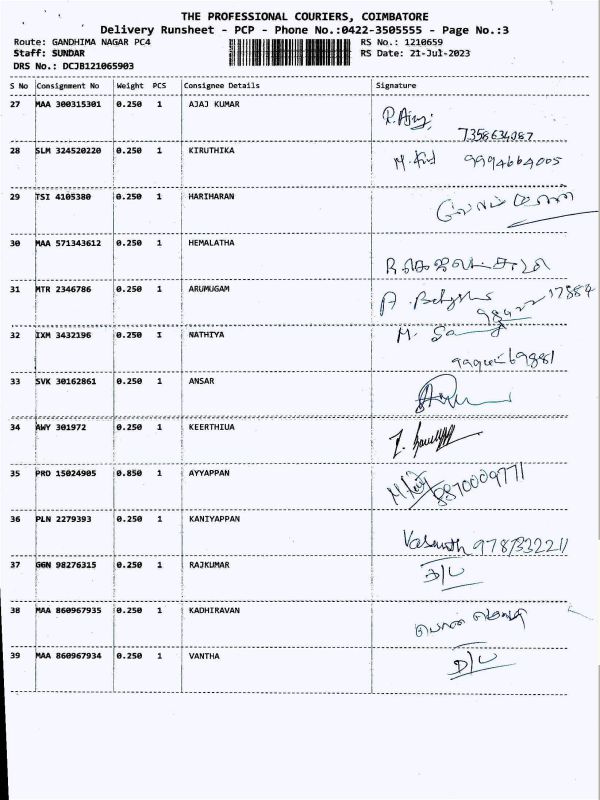 THE PROFESSIONAL COURIERS, COIMBATORE
Delivery Runsheet - PCP - Phone No.:0422-3505555 - Page No.:3
Route: GANDHIMA NAGAR PC4 RS No.: 1210659
Staff: SUNDAR RS Date: 21-Jul-2023
DRS No.: DCJB121065903
S No Consignment No Weight PCS Consignee Details Signature
27 MAA 300315301 0.250 1 AJAJ KUMAR R. Ajay
7358634087
28 SLM 324520220 0.250 1 KIRUTHIKA 9994664005
29 TSI 4105380 0.250 1 HARIHARAN
30 MAA 571343612 0.250 1 HEMALATHA
31 MTR 2346786 0.250 1 ARUMUGAM
32 IXM 3432196 0.250 1 NATHIYA
33 SVK 30162861 0.250 1 ANSAR
34 AWY 301972 0.250 1 KEERTHIUA
35 PRO 15024905 0.850 1 AYYAPPAN 8870009771
36 PLN 2279393 0.250 1 KANIYAPPAN Vasanth
37 GGN 98276315 0.250 1 RAJKUMAR D/L
38 MAA 860967935 0.250 1 KADHIRAVAN
39 MAA 860967934 0.250 1 VANTHA D/L